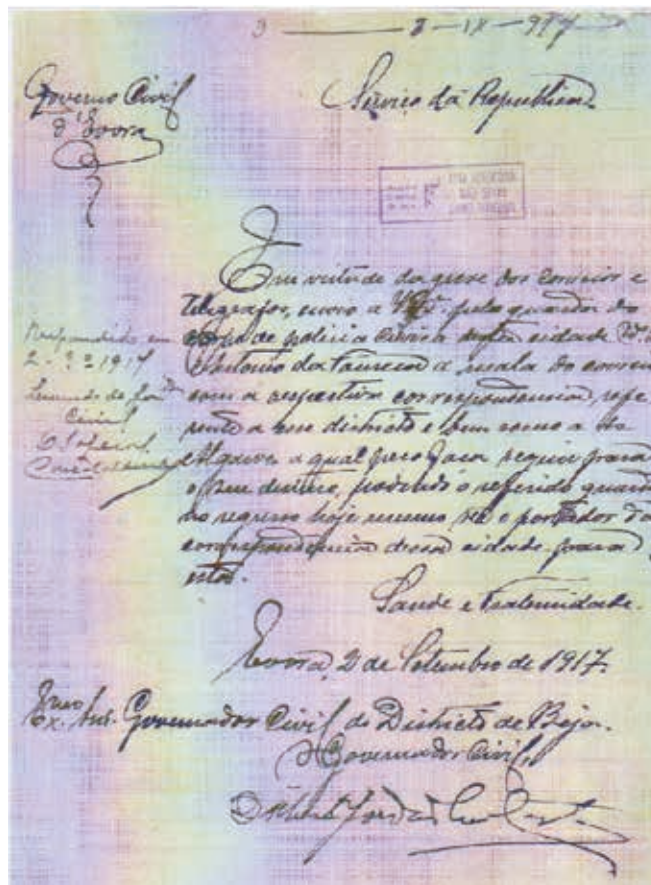 2 - IX - 917
Governo Civil
d'Evora
Serviço da Republica
Em virtude da greve dos Correios e
Telegrafos, envio a V. Exª. pelo guarda do
corpo de policia civica desta cidade Nº.
Antonio da a mala do correio
com a respectiva correspondencia, refe
rente a esse districto e bem como a do
Algarve, a qual peço faça seguir para
o seu destino, podendo o referido guarda
no regresso hoje mesmo ser o portador da
correspondencia dessa cidade para
esta.
Respondido em
2-9-1917
Civil
O Oficial
Saude e Fraternidade.
Evora, 2 de Setembro de 1917.
Exmo. Snr. Governador Civil do Districto de Beja.
O Governador Civil,